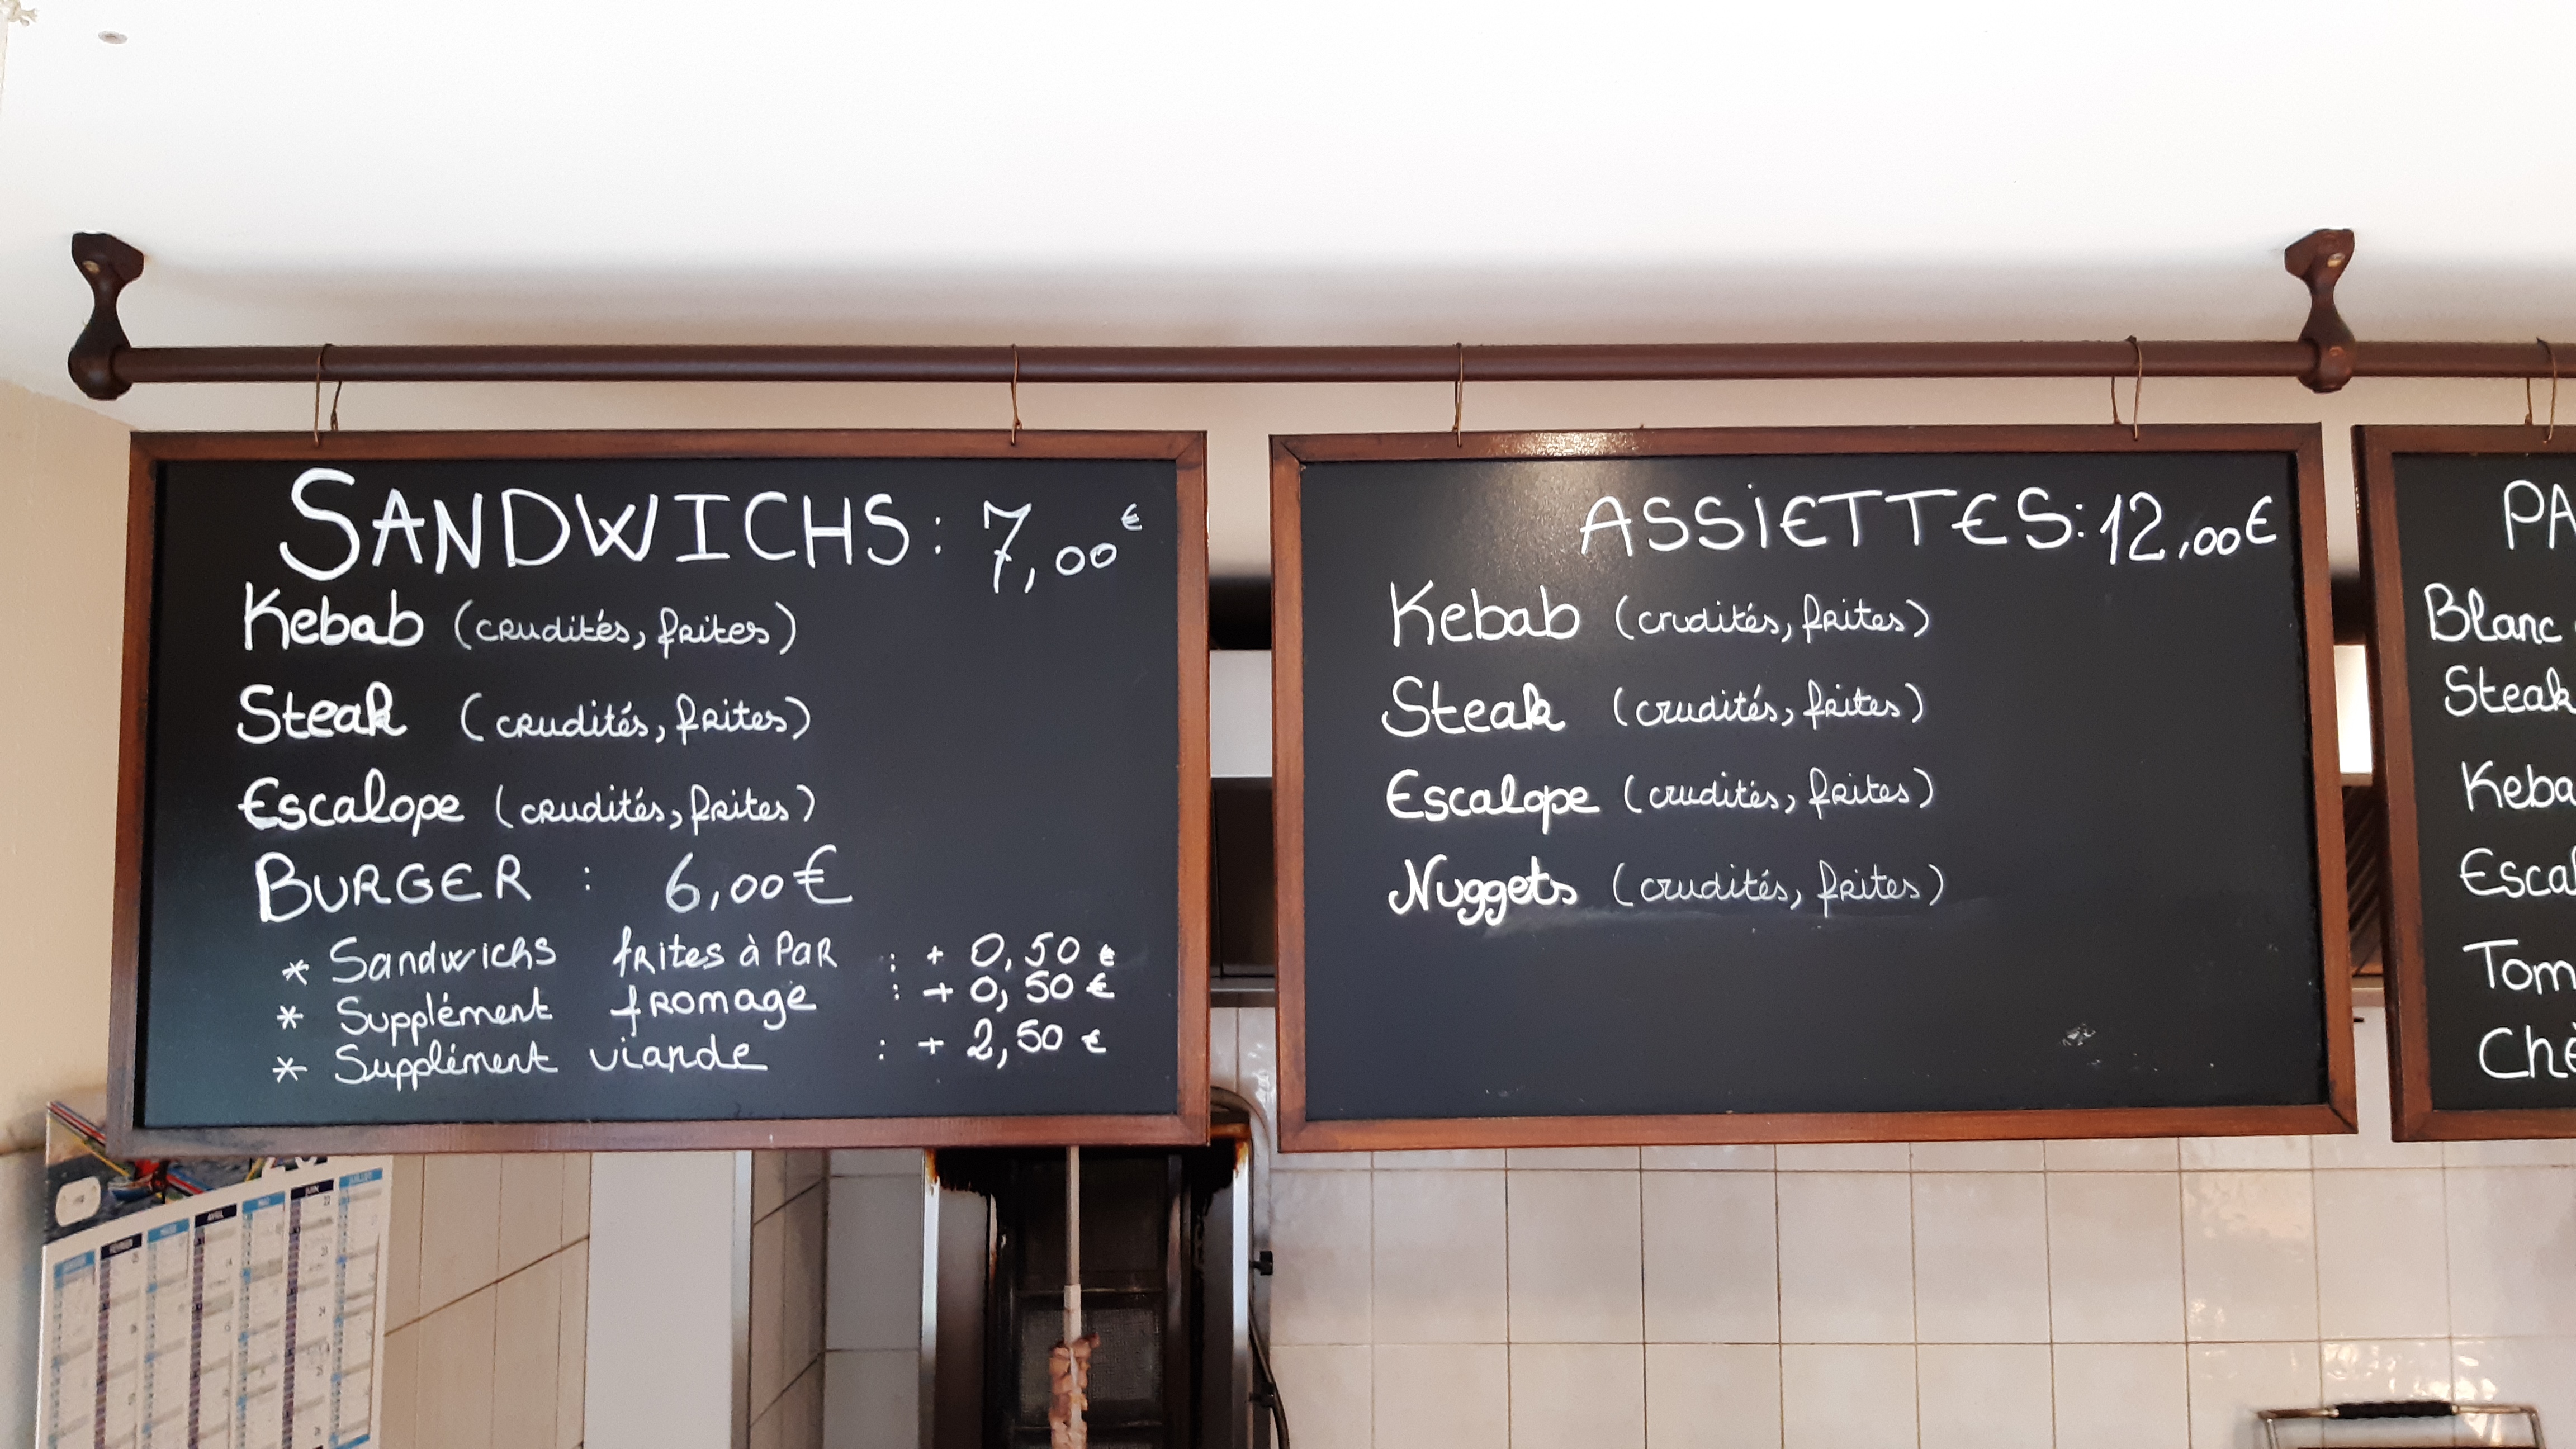 SANDWICHS : 7,00€
Kebab (crudités, frites)
Steak (crudités, frites)
Escalope (crudités, frites)
BURGER : 6,00€
* Sandwichs frites à PaR : + 0,50 €
* Supplément fromage : + 0,50 €
* Supplément viande : + 2,50 €
ASSIETTES: 12,00€
Kebab (crudités, frites)
Steak (crudités, frites)
Escalope (crudités, frites)
Nuggets (crudités, frites)
PA
Blanc
Steak
Keba
Escal
Tom
Chè
AVRIL
JUIN